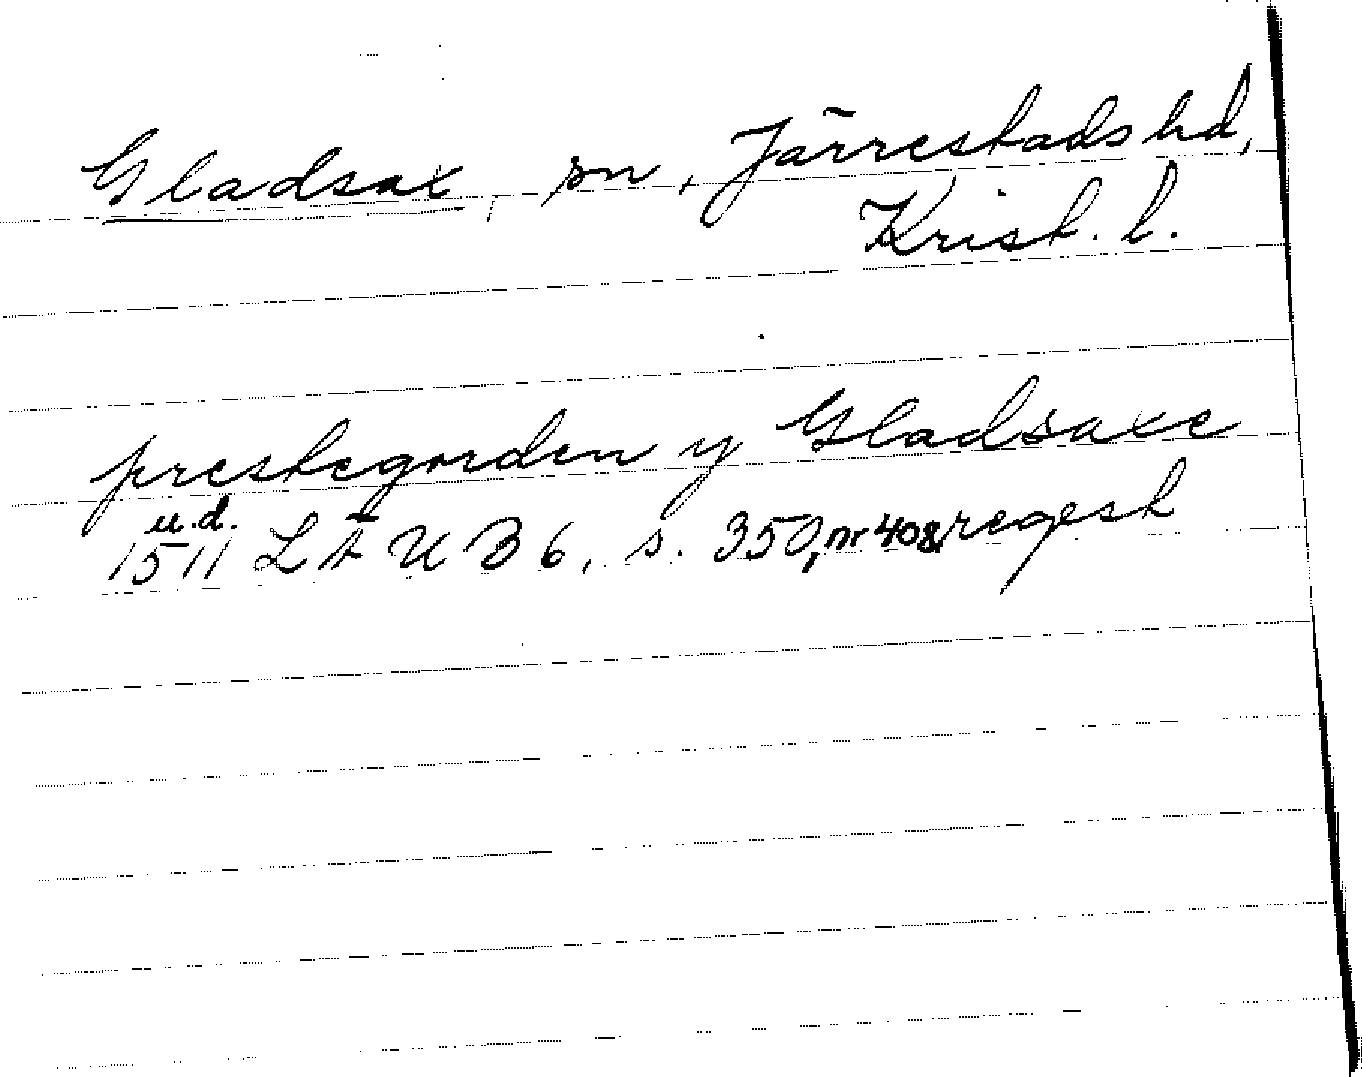 Gladsax, sn, Järrestads hd,
Krist. l.
prestegorden y Gladsaxe
u.d.
1511 LÄUB 6, s. 350, nr 408, regest